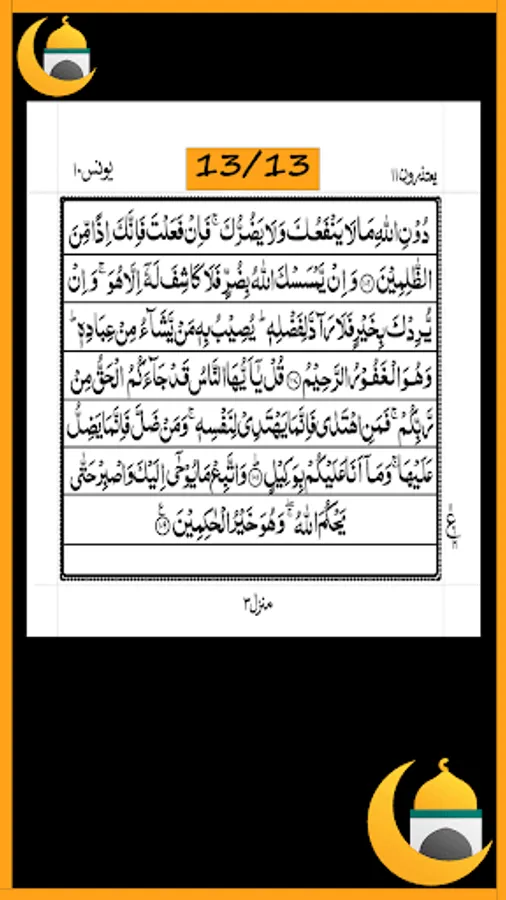 يعتذرون ١١
13/13
يونس ١٠
دُوۡنِ اللّٰهِ مَا لَا يَنۡفَعُكَ وَلَا يَضُرُّكَ ۚ فَاِنۡ فَعَلۡتَ فَاِنَّكَ اِذًا مِّنَ
الظّٰلِمِيۡنَ ﴿۱۰۶﴾ وَاِنۡ يَّمۡسَسۡكَ اللّٰهُ بِضُرٍّ فَلَا كَاشِفَ لَهٗۤ اِلَّا هُوَ ۚ وَاِنۡ
يُّرِدۡكَ بِخَيۡرٍ فَلَا رَآدَّ لِفَضۡلِهٖ ؕ يُصِيۡبُ بِهٖ مَنۡ يَّشَآءُ مِنۡ عِبَادِهٖ ؕ
وَهُوَ الۡغَفُوۡرُ الرَّحِيۡمُ ﴿۱۰۷﴾ قُلۡ يٰۤاَيُّهَا النَّاسُ قَدۡ جَآءَكُمُ الۡحَقُّ مِنۡ
رَّبِّكُمۡ ۚ فَمَنِ اهۡتَدٰى فَاِنَّمَا يَهۡتَدِىۡ لِنَفۡسِهٖ ۚ وَمَنۡ ضَلَّ فَاِنَّمَا يَضِلُّ
عَلَيۡهَا ۚ وَمَاۤ اَنَا عَلَيۡكُمۡ بِوَكِيۡلٍ ﴿۱۰۸﴾ وَاتَّبِعۡ مَا يُوۡحٰۤى اِلَيۡكَ وَاصۡبِرۡ حَتّٰى
يَحۡكُمَ اللّٰهُ ۖۚ وَهُوَ خَيۡرُ الۡحٰكِمِيۡنَ ﴿۱۰۹﴾
منزل ٣